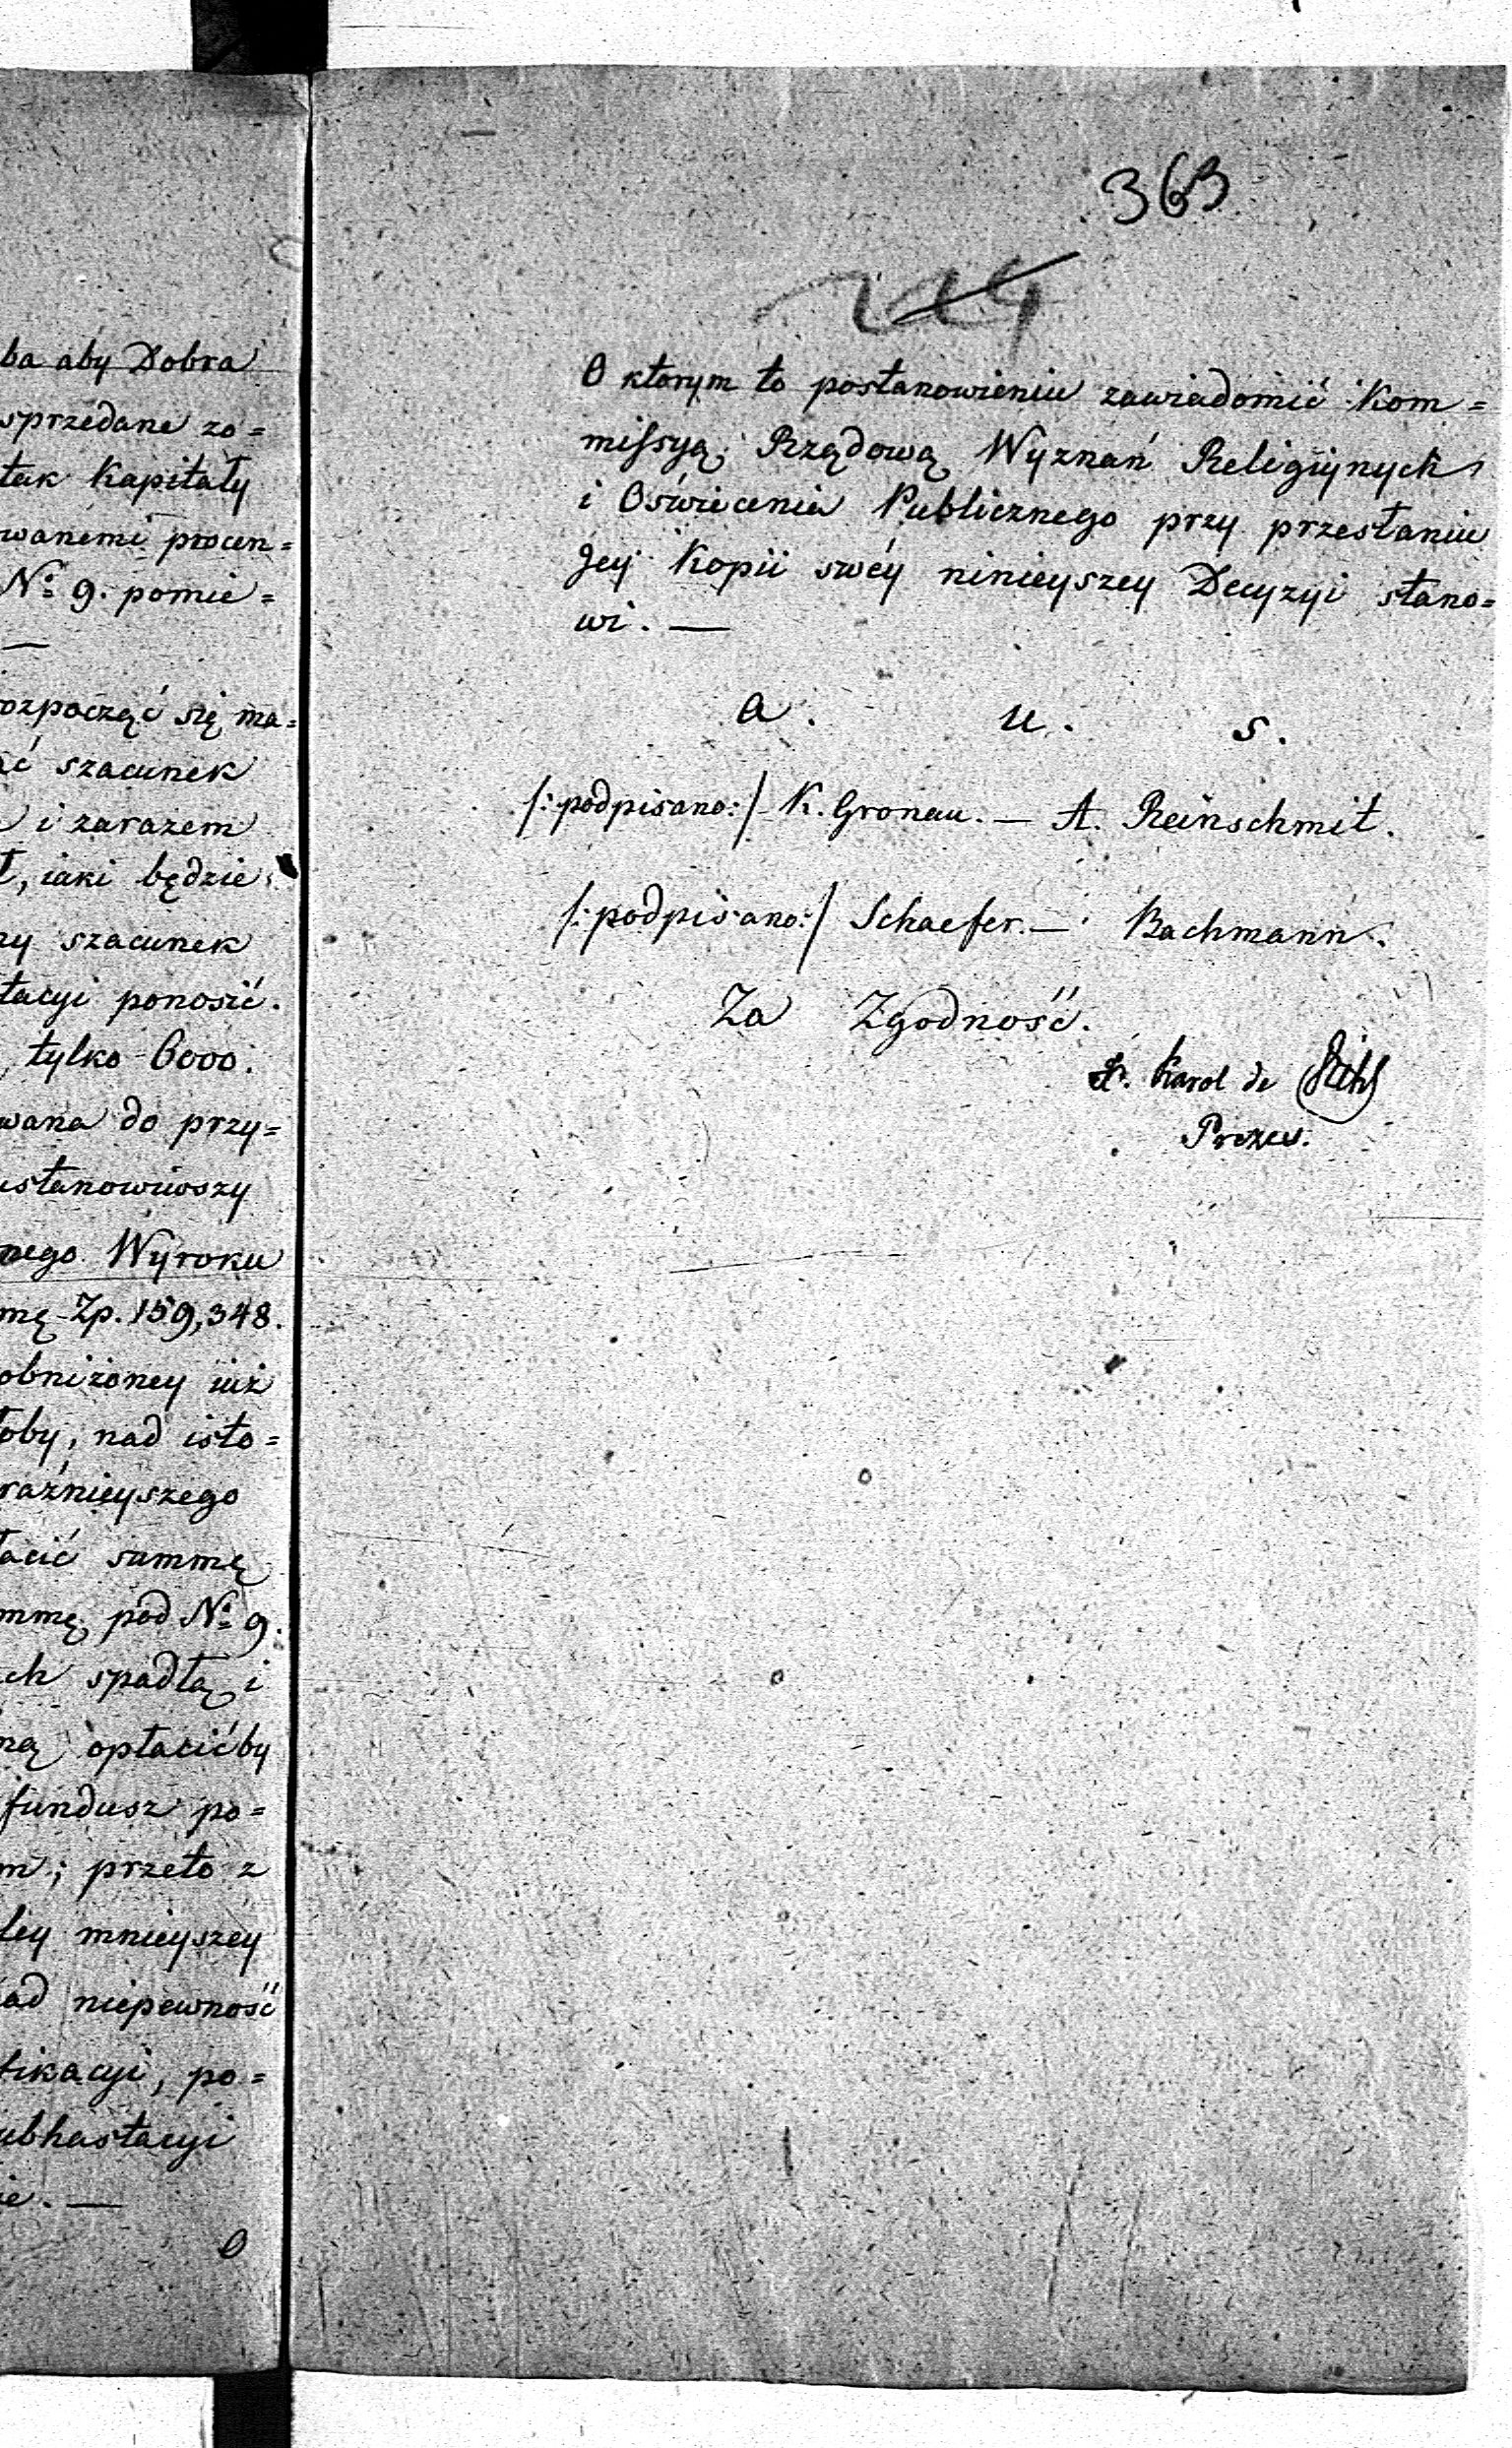 ba aby Dobra
sprzedane zo=
tak Kapitały
wanemi procen=
No 9. pomie=
—
ozpocząć się ma=
ać szacunek
i zarazem
ł, iaki będzie
ry szacunek
tacyi ponosić.
tylko 6000.
wana do przy=
ustanowiwszy
nego Wyroku
mę Zp. 159,348.
obniżoney iuż
oby, nad isto=
raźnieyszego
łacić summę
mmę pod No 9.
ch spadłą i
ną opłacićby
fundusz po=
m; przeto z
ley mnieyszey
ad niepewność
fikacyi, po=
ubhastacyi
ie. —
O
363
O ktorym to postanowieniu zawiadomić Kom=
missyą Rządową Wyznań Religiynych
i Oświecenia Publicznego przy przesłaniu
Jey Kopii swéy ninieyszey Decyzyi stano=
wi. —
a. u. s.
/:podpisano:/ K. Gronau. — A. Reinschmit.
/:podpisano:/ Schaefer. — Bachmann.
Za Zgodność.
Karol de
Prezes.